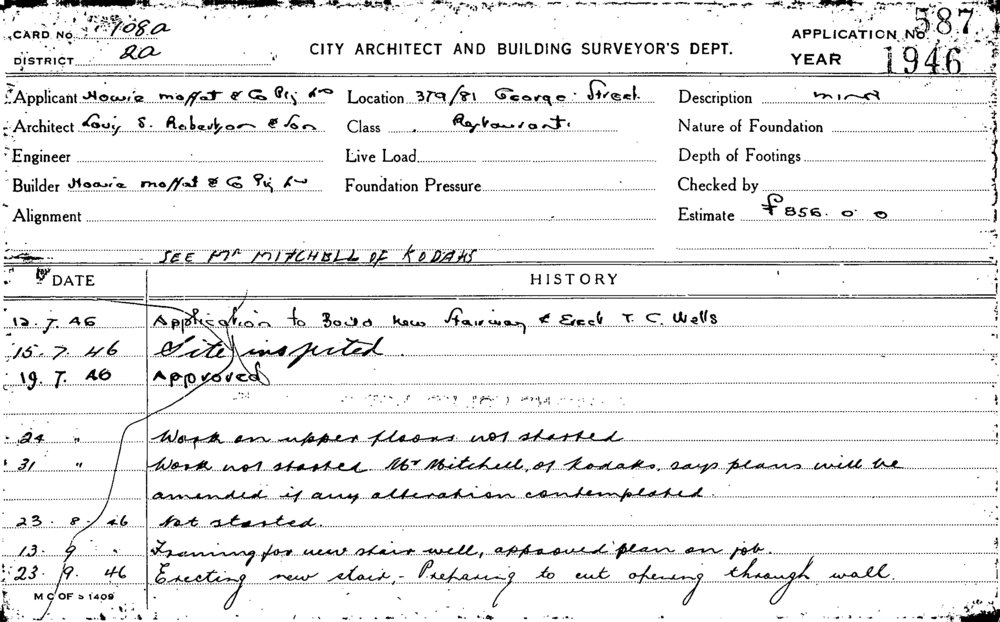 CARD No. 108a
DISTRICT 2a
CITY ARCHITECT AND BUILDING SURVEYOR'S DEPT.
APPLICATION No 587
YEAR 1946
Applicant Howie Moffat & Co Pty Ltd
Architect Louis S. Robertson & Son
Engineer
Builder Howie Moffat & Co Pty Ltd
Alignment
Location 379/81 George Street
Class Restaurant.
Live Load
Foundation Pressure
Description Minor
Nature of Foundation
Depth of Footings
Checked by
Estimate £856. 0. 0
SEE Mr MITCHELL OF KODAKS
DATE HISTORY
12. 7. 46 Application to Build new Stairway & Erect T. C. Walls
15. 7. 46 Site inspected.
19. 7. 46 Approved
24 " Work on upper floors not started
31 " Work not started. Mr Mitchell, of Kodaks, says plans will be
amended if any alteration contemplated.
23. 8. 46 Not started.
13. 9 " Framing for new stair well, approved plan on job.
23. 9. 46 Erecting new stair, - Preparing to cut opening through wall.
M C OF S 1409